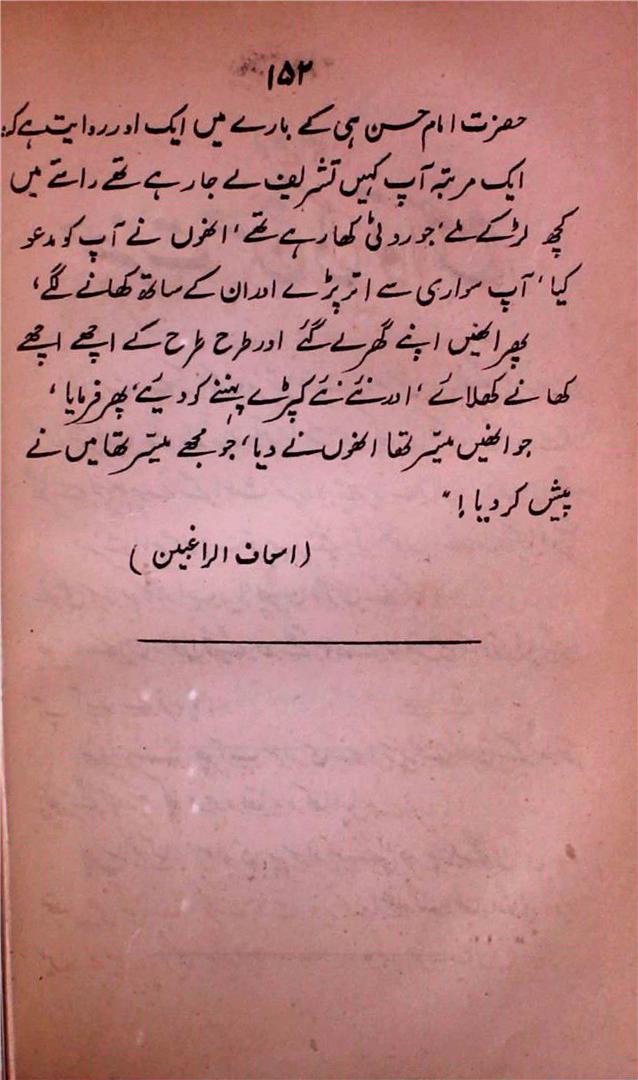 ۱۵۲
حضرت امام حسن ہی کے بارے میں ایک اور روایت ہے کہ:
ایک مرتبہ آپ کہیں تشریف لے جا رہے تھے راستے میں
کچھ لڑکے ملے، جو روٹی کھا رہے تھے، انھوں نے آپ کو مدعو
کیا، آپ سواری سے اتر پڑے اور ان کے ساتھ کھانے لگے،
پھر انھیں اپنے گھر لے گئے اور طرح طرح کے اچھے اچھے
کھانے کھلائے، اور نئے نئے کپڑے پہننے کو دیے، پھر فرمایا،
جو انھیں میسّر تھا انھوں نے دیا، جو مجھے میسّر تھا میں نے
پیش کر دیا!"
(اسعاف الراغبین)